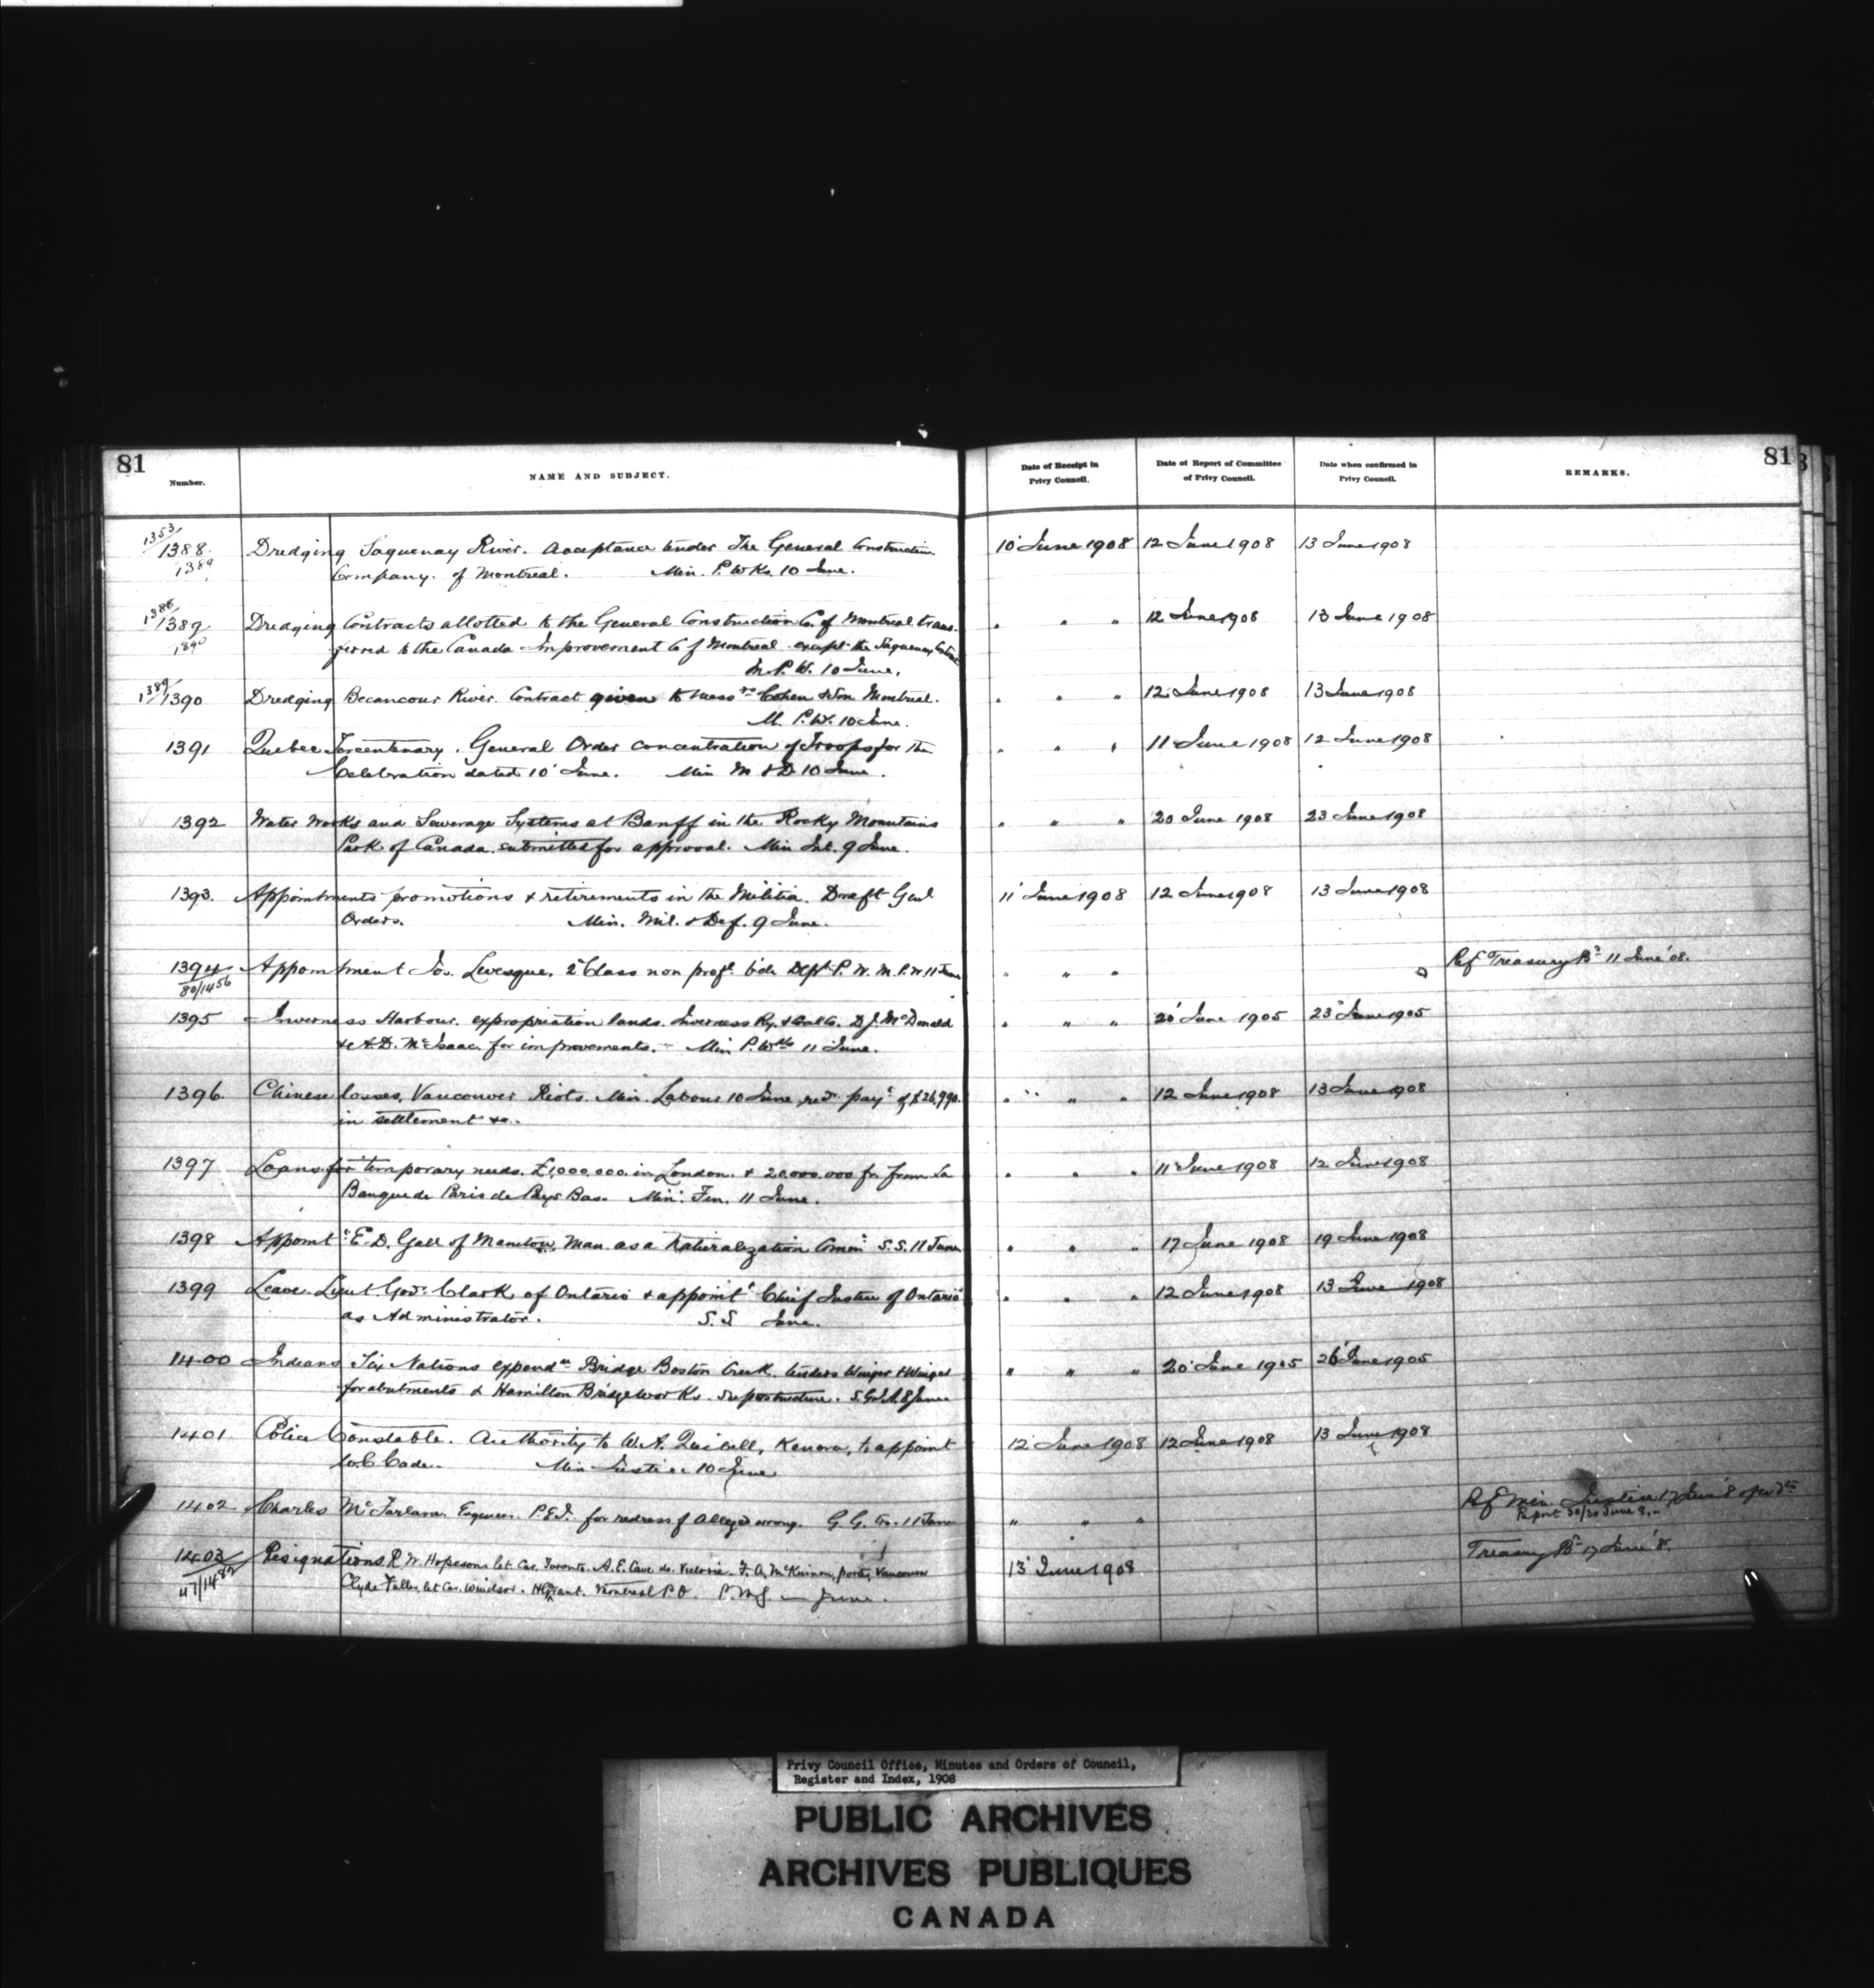 81
Number.
NAME AND SUBJECT.
Date of Receipt in
Privy Council.
Date of Report of Committee
of Privy Council.
Date when confirmed in
Privy Council.
REMARKS.
81
1353/
1388. Dredging Saguenay River. Acceptance tender The General Construction 10 June 1908 12 June 1908 13 June 1908
1389 Company. of Montreal. Min. P. Wks. 10 June.
1388/
1389. Dredging Contracts allotted to the General Construction Co. of Montreal trans- " " " 12 June 1908 13 June 1908
1390 ferred to the Canada Improvement Co of Montreal except the Saguenay
M. P. W. 10 June.
1389/
1390 Dredging Becancour River. Contract given to Messrs Cohen & Son Montreal. " " " 12 June 1908 13 June 1908
M. P. W. 10 June.
1391 Quebec Tercentenary. General Order concentration of Troops for the " " " 11 June 1908 12 June 1908
Celebration dated 10 June. Min M & D 10 June.
1392 Water Works and Sewerage Systems at Banff in the Rocky Mountains " " " 20 June 1908 23 June 1908
Park of Canada submitted for approval. Min Int. 9 June.
1393. Appointments promotions & retirements in the Militia. Draft Genl 11 June 1908 12 June 1908 13 June 1908
Orders. Min. Mil. & Def. 9 June.
1394 Appointment Jos. Levesque. 2d Class non profl. Dept P. W. M. P. W 11 June " " " Ref Treasury Bd 11 June '08.
80/1456
1395 Inverness Harbour. expropriation lands. Inverness Ry. & Coal Co. D. J. McDonald " " " 20 June 1905 23 June 1905
& A. D. McIsaac for improvements. Min P. Wks 11 June.
1396. Chinese losses, Vancouver Riots. Min. Labour 10 June, recd payt of $26,990. " " " 12 June 1908 13 June 1908
in settlement &c.
1397 Loans for temporary needs. £1,000,000. in London. & 20.000.000 fr from La " " " 11 June 1908 12 June 1908
Banque de Paris de Pays Bas. Min: Fin. 11 June.
1398 Appointt E. D. Gall of Manitou, Man. as a Naturalization Commr S. S. 11 June " " " 17 June 1908 19 June 1908
1399 Leave Lieut Govr. Clark of Ontario & appointt Chief Justice of Ontario " " " 12 June 1908 13 June 1908
as Administrator. S. S June.
1400 Indians Six Nations expendre Bridge Boston Creek. tenders Winger & Winger " " " 20 June 1905 26 June 1905
for abutments & Hamilton Bridge Works. Superstructure. S. G. I. A. 8 June
1401 Police Constable. Authority to W. A. Kenora, to appoint 12 June 1908 12 June 1908 13 June 1908
W. C Cade. Min Justice 10 June
1402 Charles McFarlane. P. E. I. for redress of alleged wrong. G. G. 11 June " " " Ref Min. Justice 17 June '8
Report 30/30 June 8.
1403 Resignations R. W. Hopeson let Car. Toronto. A. E. Cave do. Victoria. F. A. McKinnon, porter, Vancouver 13 June 1908 Treasury Bd 17 June '8.
47/1482 Clyde Fuller, let Car. Windsor. Grant. Montreal P. O. P. M. G. — June.
Privy Council Office, Minutes and Orders of Council,
Register and Index, 1908
PUBLIC ARCHIVES
ARCHIVES PUBLIQUES
CANADA